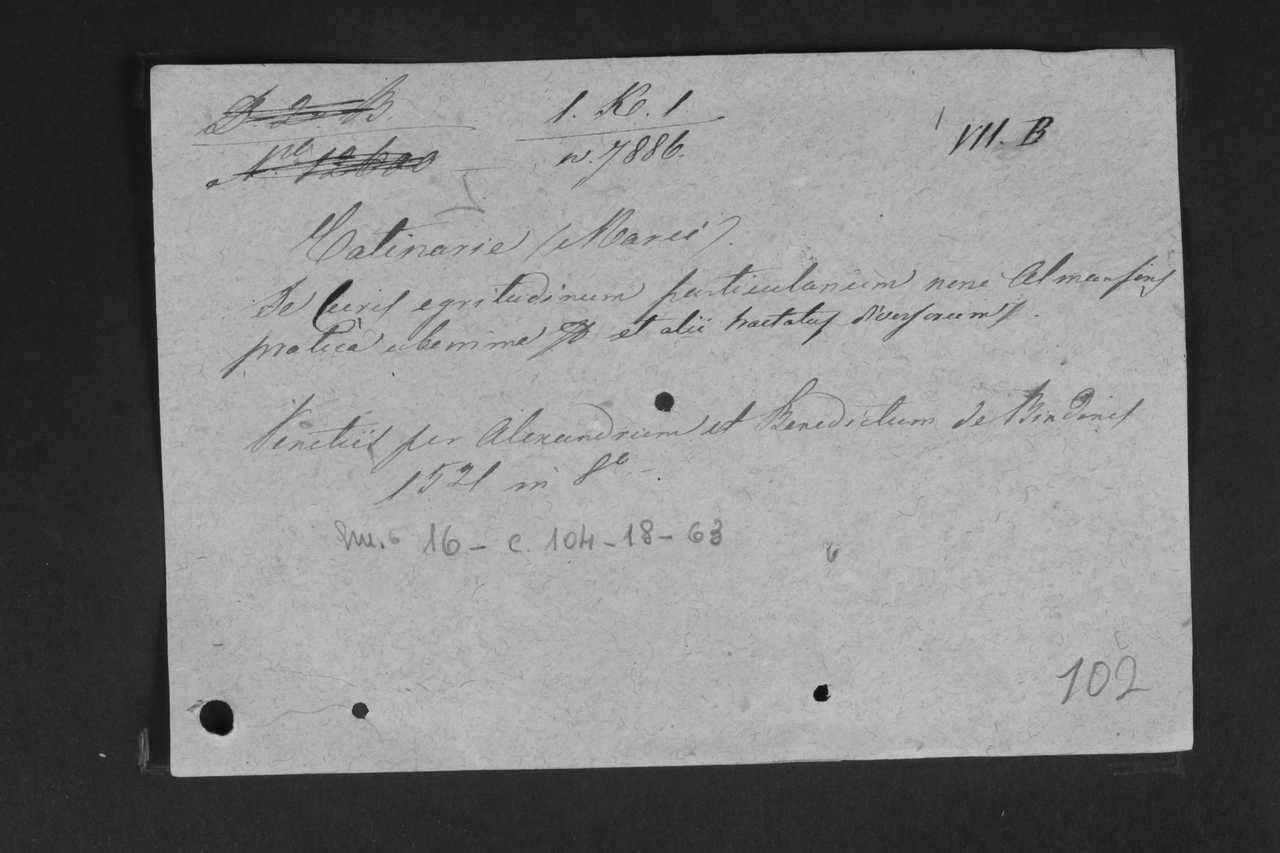 D. 2. B 1. K. 1 VII. B
N.ro 12600 n. 7886.
Catinarie (Marci).
De Curis egritudinum particularium noni Almansoris
pratica uberrima et alii tractatus diversorum.
Venetiis per Alexandrum et Benedictum de Bindonis
1521 in 8o
16 - c. 104-18-63
102